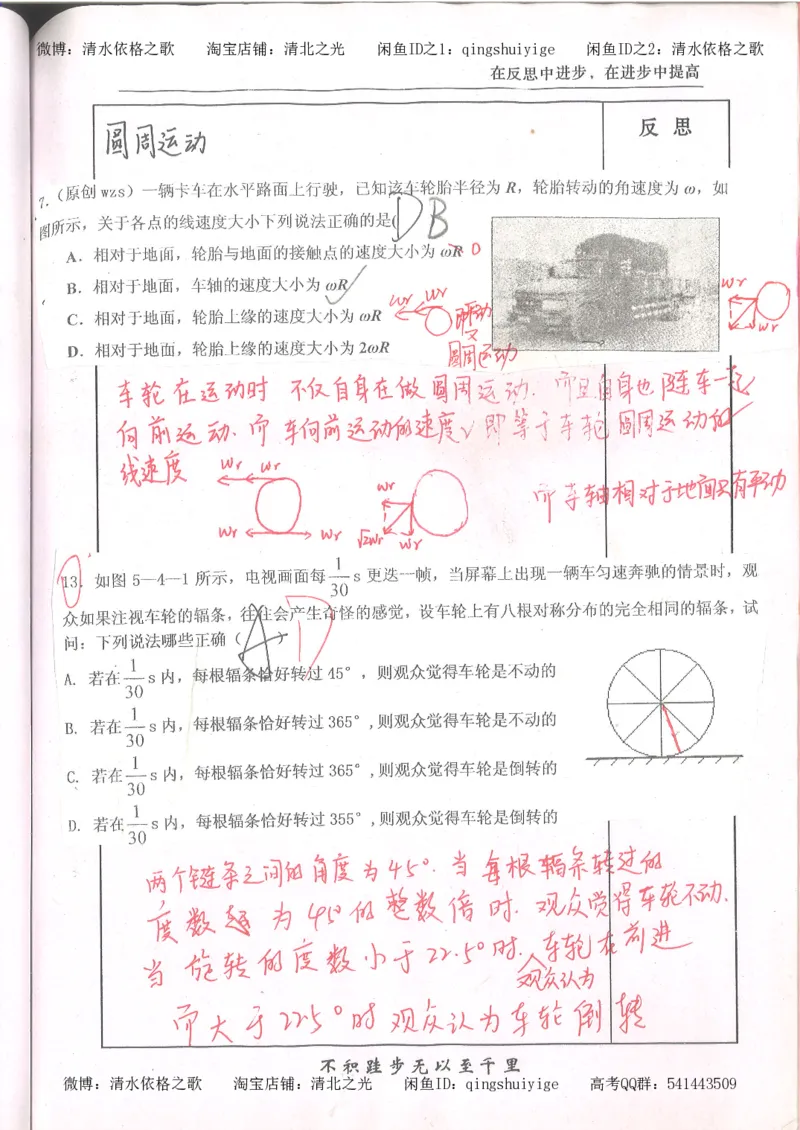 微博：清水依格之歌 淘宝店铺：清北之光 闲鱼ID之1：qingshuiyige 闲鱼ID之2：清水依格之歌
在反思中进步，在进步中提高
圆周运动
反 思
7.（原创 wzs）一辆卡车在水平路面上行驶，已知该车轮胎半径为 R，轮胎转动的角速度为 ω，如
图所示，关于各点的线速度大小下列说法正确的是( DB
A．相对于地面，轮胎与地面的接触点的速度大小为 ωR 0
B．相对于地面，车轴的速度大小为 ωR
C．相对于地面，轮胎上缘的速度大小为 ωR
D．相对于地面，轮胎上缘的速度大小为 2ωR
wr wr
圆周运动
wr
wr
车轮在运动时 不仅自身在做圆周运动．而且自身也随车一起
向前运动．而车向前运动的速度，即等于车轮圆周运动的
线速度
wr wr
wr wr
wr
√2wr wr
而车轴相对于地面只有平动
13．如图 5—4—1 所示，电视画面每 1/30 s 更迭一帧，当屏幕上出现一辆车匀速奔驰的情景时，观
众如果注视车轮的辐条，往往会产生奇怪的感觉，设车轮上有八根对称分布的完全相同的辐条，试
问：下列说法哪些正确（ A D ）
A. 若在 1/30 s 内，每根辐条恰好转过 45°，则观众觉得车轮是不动的
B. 若在 1/30 s 内，每根辐条恰好转过 365°,则观众觉得车轮是不动的
C. 若在 1/30 s 内，每根辐条恰好转过 365°,则观众觉得车轮是倒转的
D. 若在 1/30 s 内，每根辐条恰好转过 355°,则观众觉得车轮是倒转的
两个链条之间的角度为45°．当每根辐条转过的
度数 为45°的整数倍时．观众觉得车轮不动．
当旋转的度数小于22.5°时．观众认为车轮在前进
而大于22.5°时观众认为车轮倒转
不积跬步无以至千里
微博：清水依格之歌 淘宝店铺：清北之光 闲鱼ID：qingshuiyige 高考QQ群：541443509